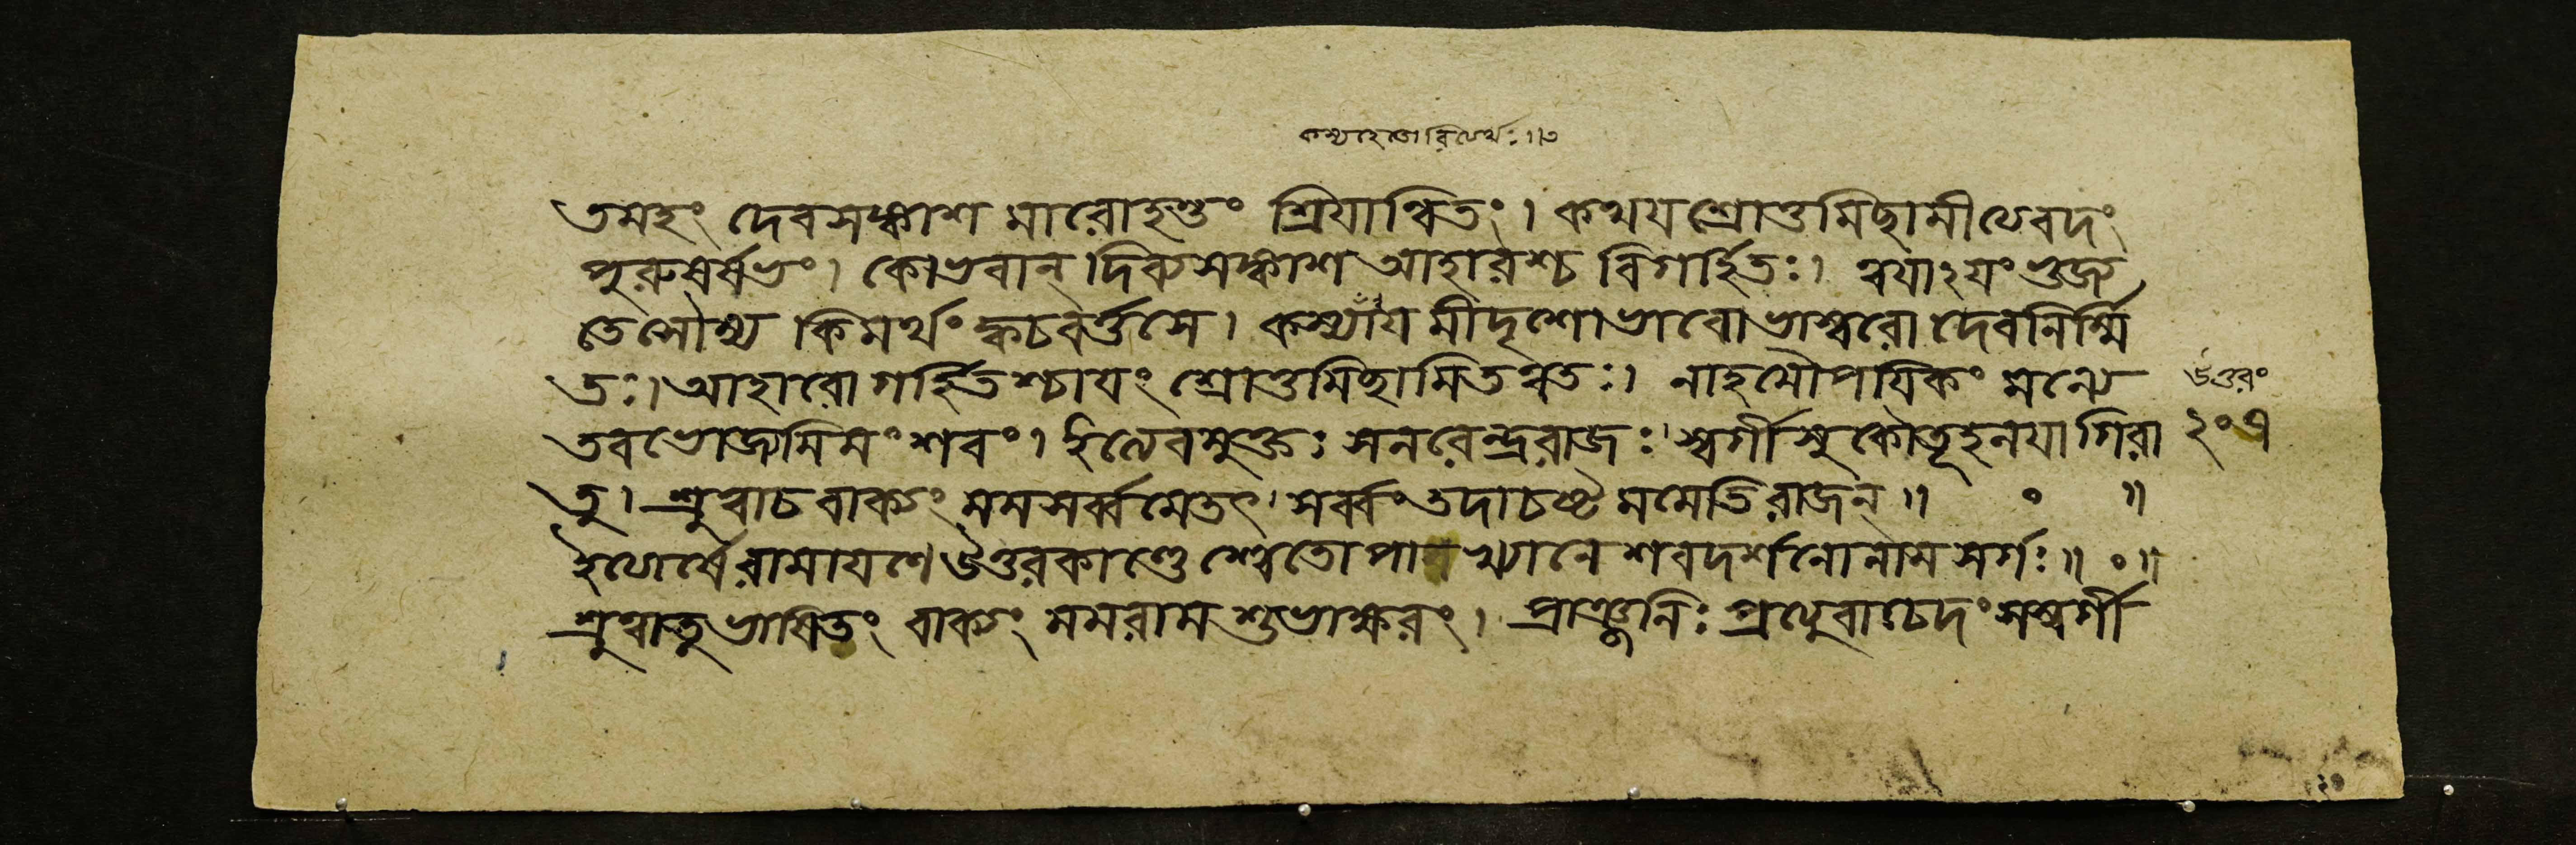 তমহং দেবসঙ্কাশ মারোহন্তং শ্রিযান্বিতং। কথযশ্রোতুমিছামীত্যেবদং
পুরুষর্ষভং। কোভবান্ দিব্যসঙ্কাশ আহারশ্চ বিগর্হিতঃ। ত্বযাঽযং ভুজ্য
তেসৌম্য কিমর্থং ক্বচবর্ত্তসে। কস্যাঁয মীদৃশোভাবোভাস্বরো দেবনির্ম্মি
তঃ। আহারো গর্হিতশ্চাযং শ্রোতুমিছামিতত্বতঃ। নাহমৌপযিকং মন্যে
তবভোজ্যমিমং শবং। ইত্যেবমুক্তঃ সনরেন্দ্ররাজঃ স্বর্গীসুকৌতূহলযাগিরা
তু। শ্রুত্বাচবাক্যং মমসর্ব্বমেতৎ সর্ব্বংতদাচষ্ট মমেতিরাজন্॥ ॰ ॥
ইত্যার্ষেরামাযণে উত্তরকাণ্ডে শ্বেতোপা খ্যানে শবদর্শনোনাম সর্গঃ॥ ॰ ॥
শ্রুত্বাতুভাষিতং বাক্যং মমরাম শুভাক্ষরং। প্রাঞ্জলিঃ প্রত্যুবাচেদং সস্বর্গী
উত্তরং